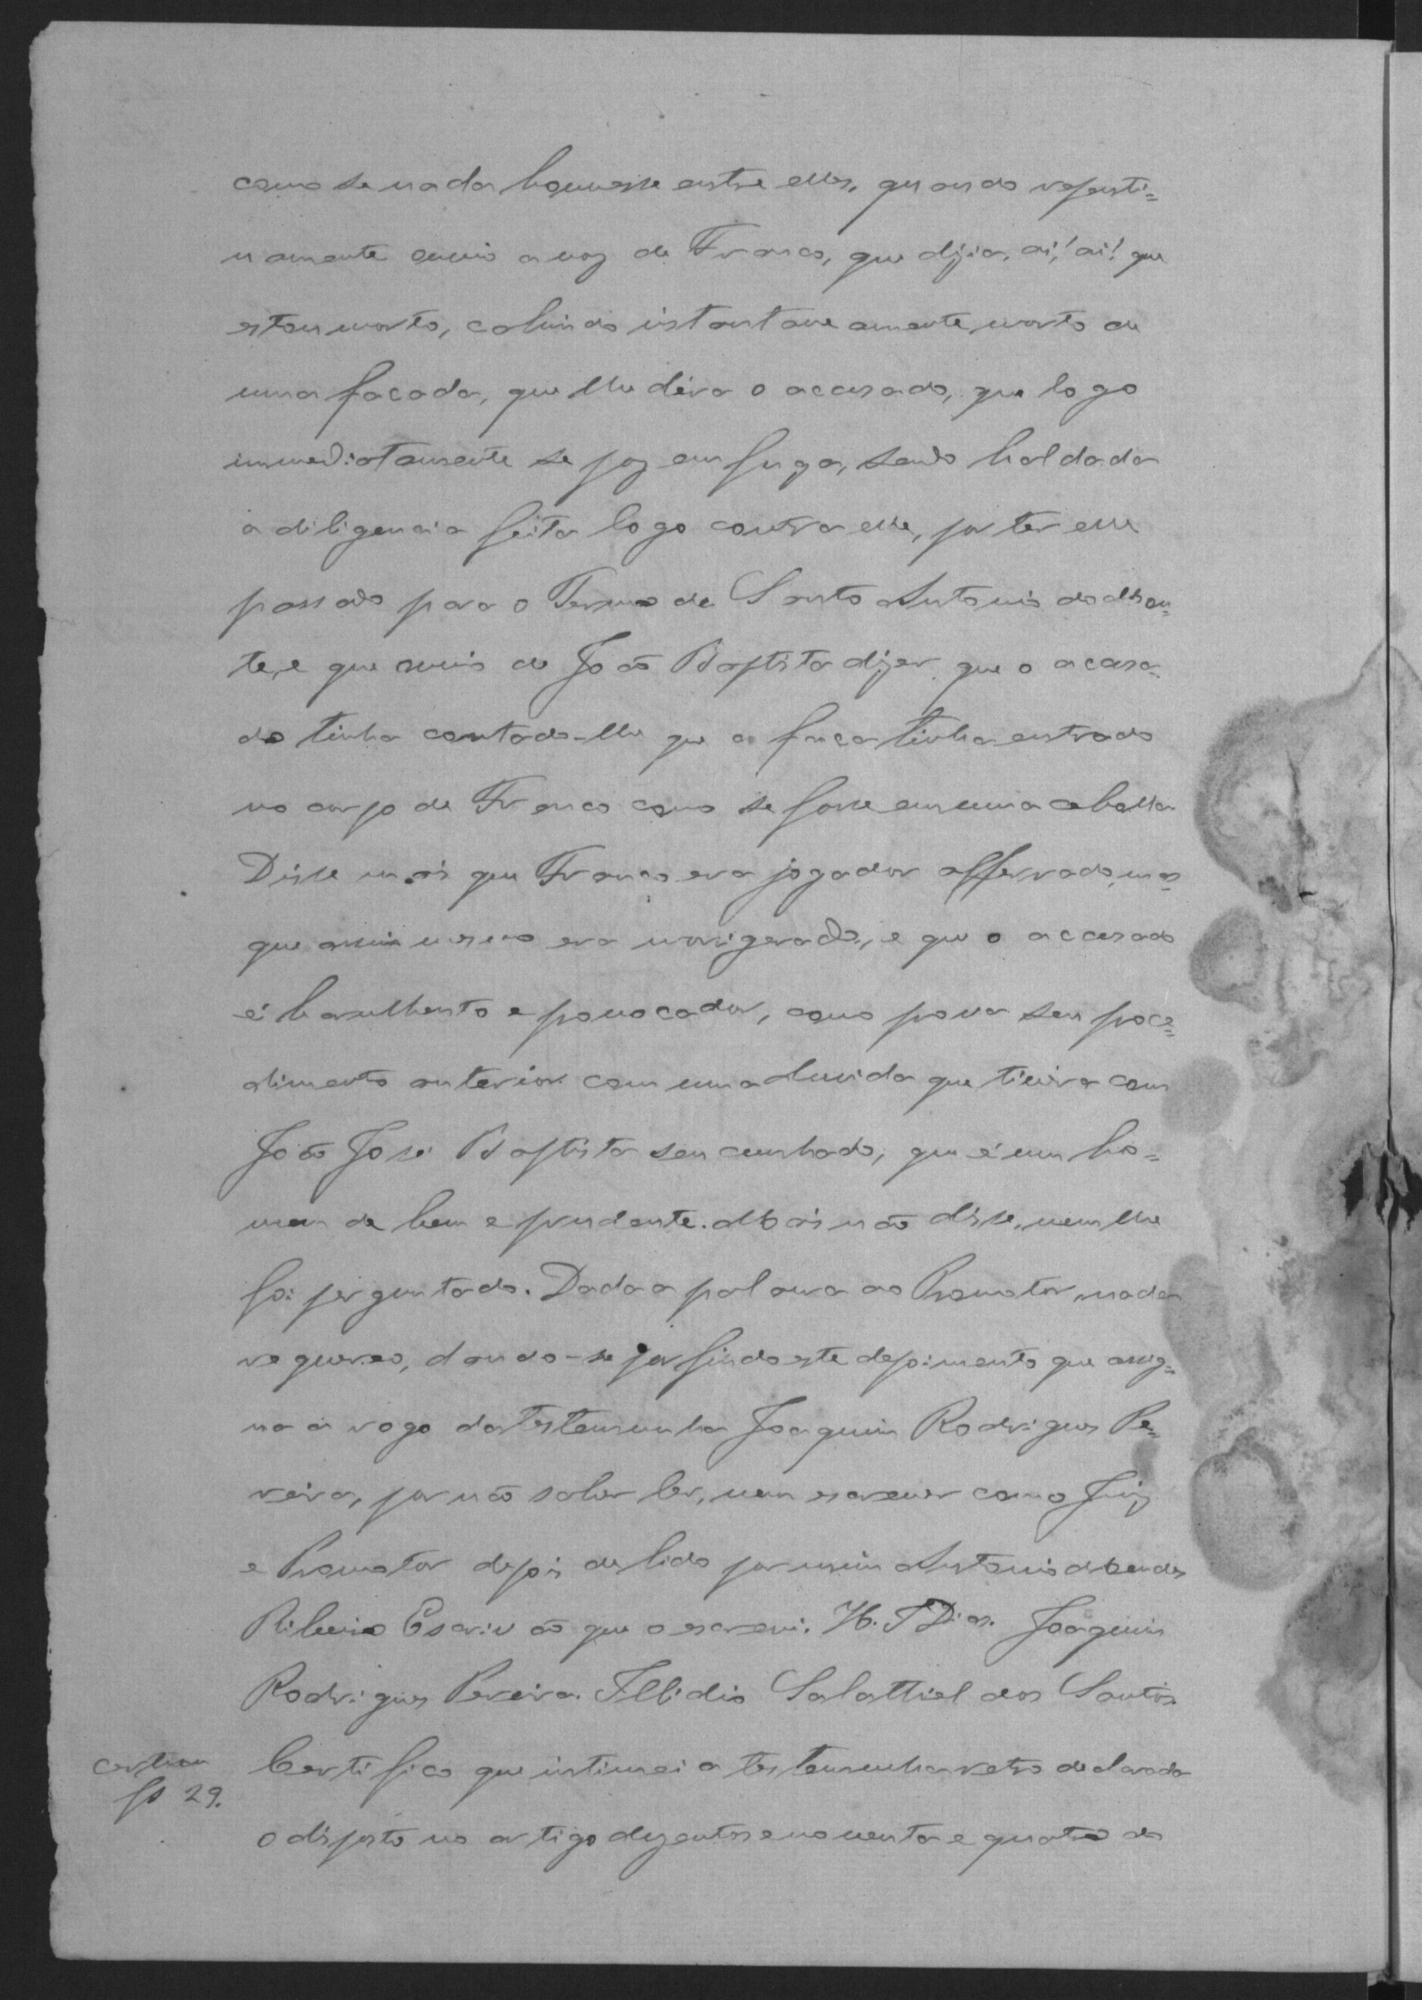 como se nada houvesse entre elles, quando repenti=
namente ouvio a voz de Franco, que dizia, ai! ai! que
estou morto, cahindo instantaneamente morto de
uma facada, que lhe déra o accusado, que logo
immediatamente se poz em fuga, sendo baldada
a diligencia feita logo contra elle, por ter elle
passado para o Termo de Santo Antonio do Mon=
te, e que ouvio de João Baptista dizer que o accusa=
do tinha contado-lhe que a faca tinha entrado
no corpo de Franco como se fosse em uma cebolla.
Disse mais que Franco era jogador afferrado, mas
que assim mesmo era morigerado, e que o accusado
é barulhento e provocador, como prova seu proce=
dimento anterior com uma duvida que tivera com
João José Baptista seu cunhado, que é um ho=
mem de bem e prudente. Mais não disse, nem lhe
foi perguntado. Dada a palavra ao Promotor, nada
requereo, dando-se por findo este depoimento que assig=
na a rogo da testemunha Joaquim Rodrigues Pe=
reira, por não saber ler, nem escrever com o Juiz
e Promotor depois de lido por mim Antonio Mendes
Ribeiro Escrivão que o escrevi. H. T Dias. Joaquim
Rodrigues Pereira. Illidio Salatthiel dos Santos.
Certifico que intimei a testemunha retro declarada
fs 29.
o disposto no artigo dusentos e noventa e quatro do